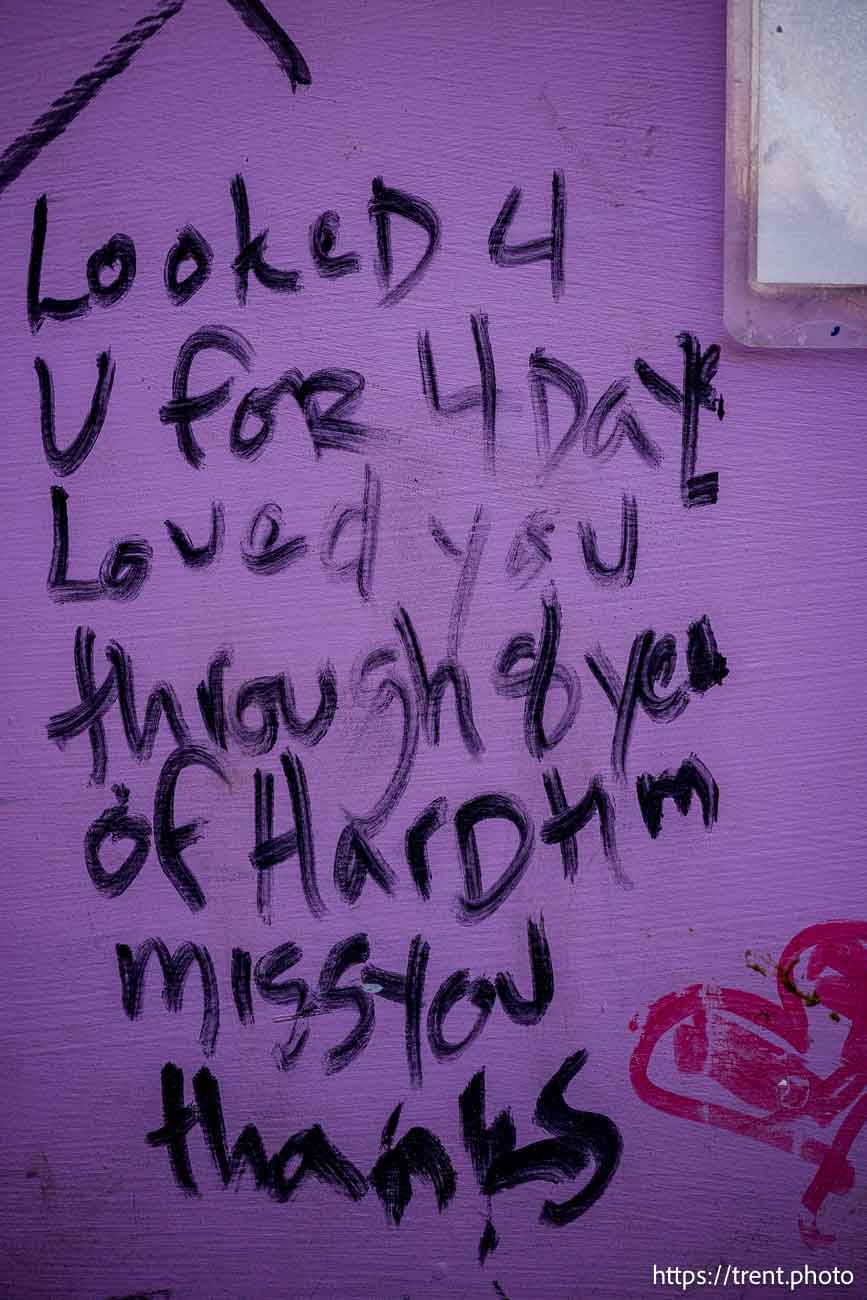 LookeD 4
U foR 4 Day
Loved you
through 8 yea
of HarD tim
miss you
thanks
https://trent.photo